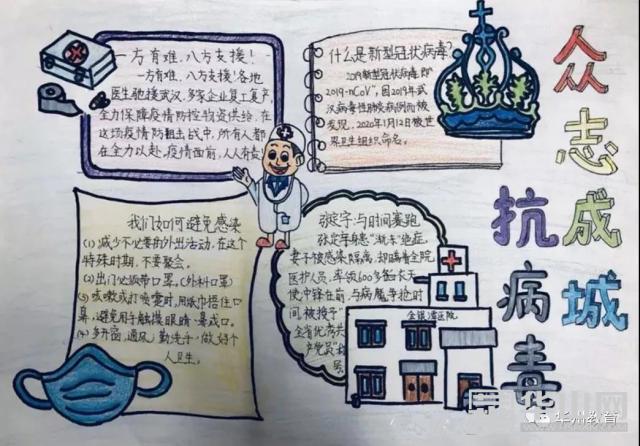 众志成城
抗病毒
一方有难，八方支援！
一方有难，八方支援！各地
医生驰援武汉，多家企业复工复产，
全力保障疫情防控物资供给，在
这场疫情防阻击战中，所有人都
在全力以赴，疫情面前，人人有责！
什么是新型冠状病毒？
2019新型冠状病毒，即
"2019-nCoV"，因2019年武
汉病毒性肺炎病例而被
发现，2020年1月12日被世
界卫生组织命名。
我们如何避免感染
(1) 减少不必要的外出活动，在这个
特殊时期，不要聚会。
(2) 出门必须带口罩。（外科口罩）
(3) 咳嗽或打喷嚏时，用纸巾捂住口
鼻，避免用手触摸眼睛、鼻或口。
(4) 多开窗，通风，勤洗手，做好个
人卫生。
张定宇：与时间赛跑
张定宇身患"渐冻"绝症，
妻子被感染隔离，却瞒着全院
医护人员，率领600多名白衣天
使冲锋在前，与病魔争抢时
间，被授予"
全省优秀共
产党员"
号
金银潭医院
华州教育